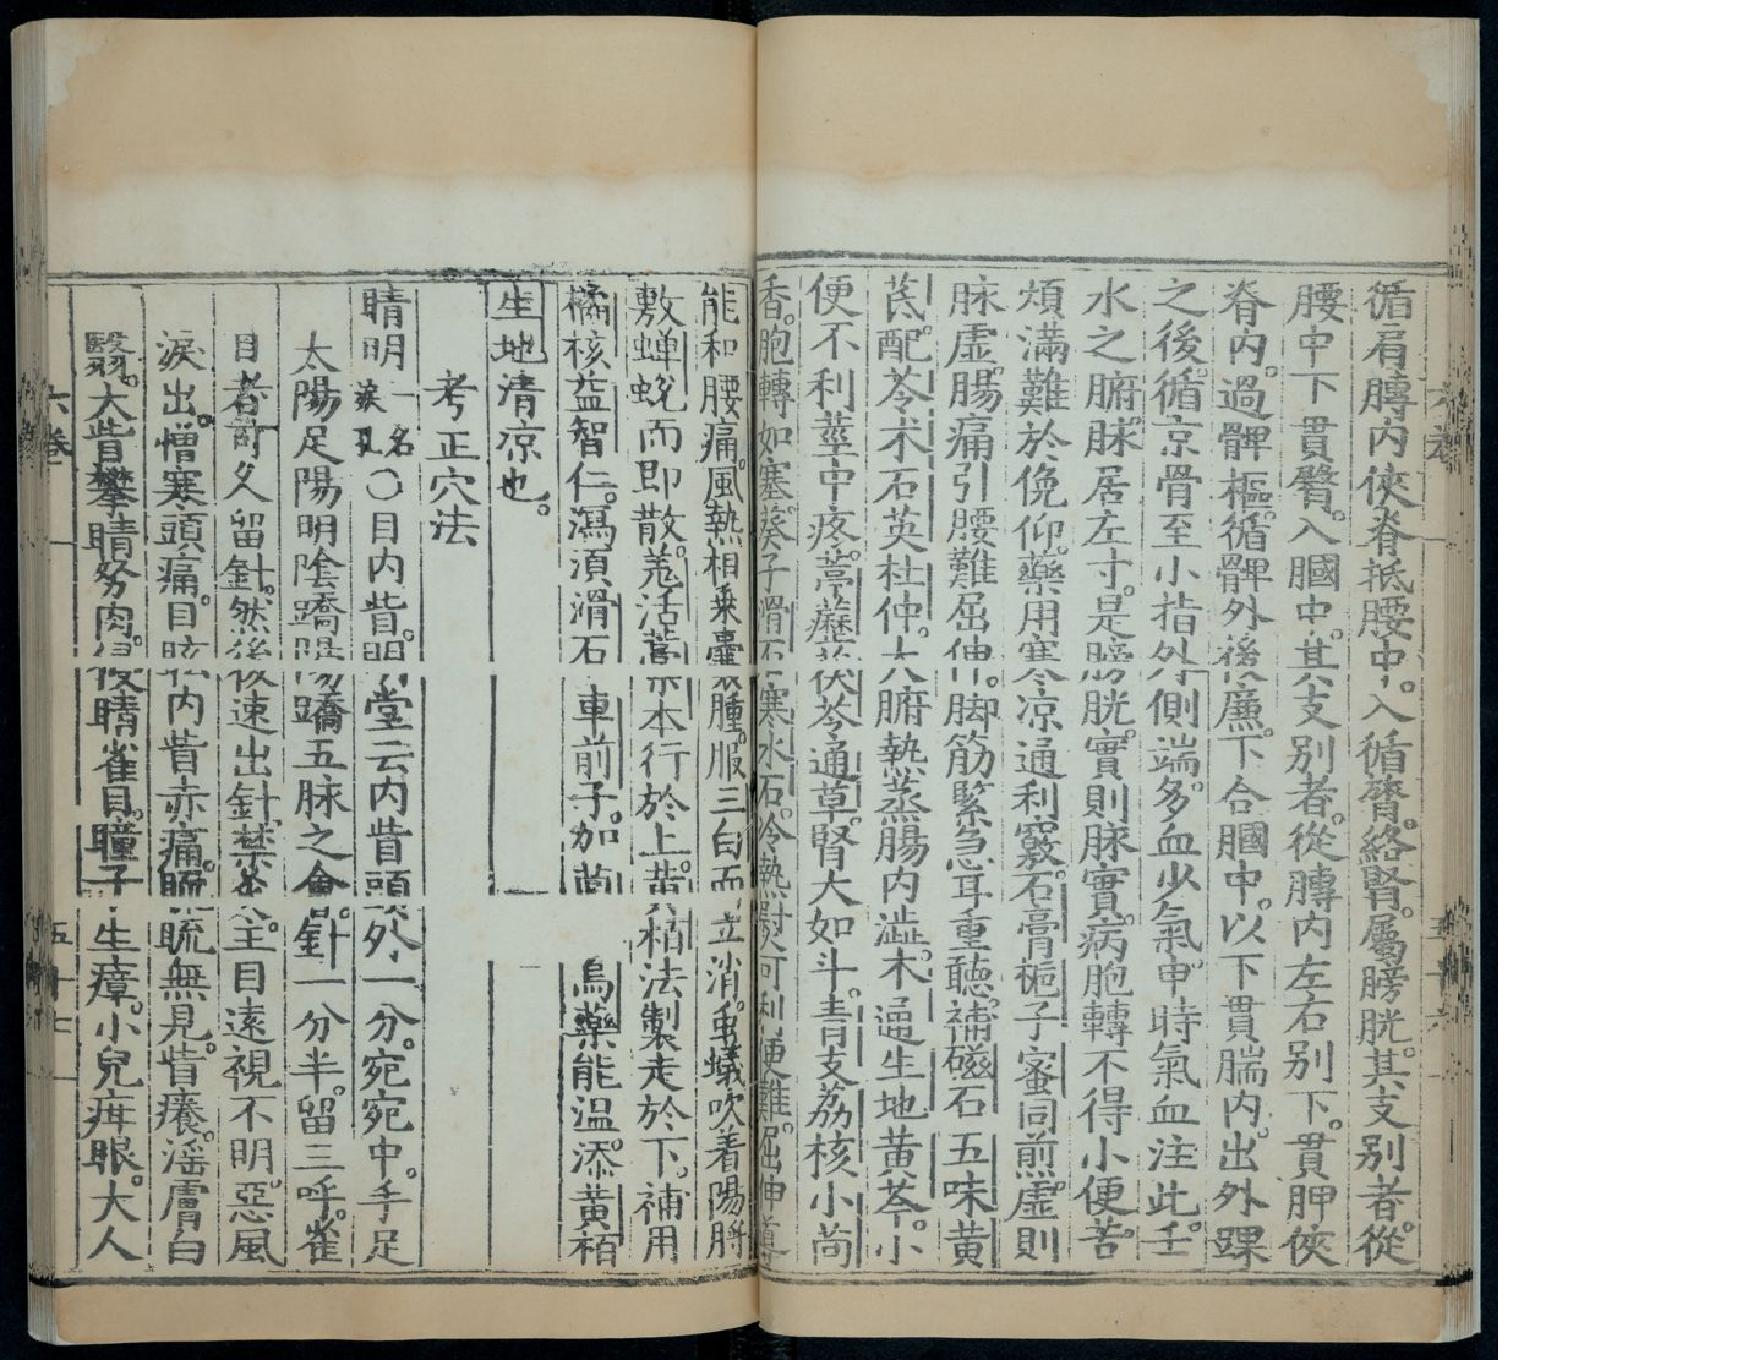 循肩膊内俠脊抵腰中。入循膂。絡腎。屬膀胱。其支別者。從
腰中下貫臀。入膕中。其支別者。從膊内左右別下。貫胛俠
脊内。過髀樞。循髀外後廉。下合膕中。以下貫腨内。出外踝
之後。循京骨至小指外側端。多血少氣。申時氣血注此。壬
水之腑。脉居左寸。是膀胱。實則脉實。病胞轉不得小便。苦
煩滿難於俛仰。藥用寒凉通利竅。石膏梔子蜜同煎。虛則
脉虛。腸痛引腰難屈伸。脚筋緊急耳重聽。補磁石五味黄
芪。配苓术石英杜仲。大腑熱蒸腸内澁。木通生地黄芩。小
便不利莖中疼。葶藶茯苓通草。腎大如斗。青支荔核小茴
香。胞轉如塞。葵子滑石寒水石。冷熱熨可利便難。屈伸導
能和腰痛。風熱相乗囊腫。服三白而立消。虫蟻吹着陽脬
敷蝉蛻而即散。羗活藁本行於上。黄栢法製走於下。補用
橘核益智仁。瀉須滑石車前子。加茴烏藥能温。添黄栢
生地清凉也。
考正穴法
睛明一名淚孔〇目内眥。明堂云内眥頭外一分。宛宛中。手足
太陽足陽明陰蹻陽蹻五脉之會。針一分半。留三呼。雀
目者可久留針。然後速出針。禁灸。主目遠視不明。惡風
淚出。憎寒頭痛。目眩内眥赤痛。䀮䀮無見。眥癢。淫膚白
翳。大眥攀睛努肉。侵睛雀目。瞳子生瘴。小兒疳眼。大人
六卷
五十七